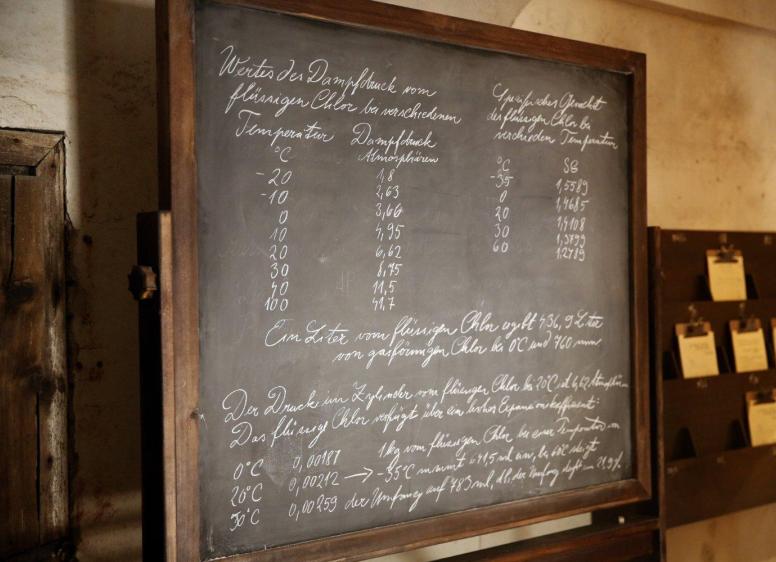 Wertes des Dampfdruck vom
flüssigen Chlor bei verschiedenen
Temperatur Dampfdruck
°C Atmosphären
-20 1,8
-10 2,63
0 3,66
10 4,95
20 6,62
30 8,75
40 11,5
100 41,7
Spezifisches Gewicht
des flüssigen Chlor bei
verschieden Temperatur
°C SG
-35 1,5589
0 1,4685
20 1,4108
30 1,3799
60 1,2789
Ein Liter vom flüssigen Chlor ergibt 436,9 Liter
von gasförmigen Chlor bei 0°C und 760 mm
Der Druck im Zylinder vom flüssigen Chlor bei 20°C ist 6,62 Atmosphären
Das flüssige Chlor verfügt über ein hohes Expansionkoeffizient:
0°C 0,00187
20°C 0,00212
30°C 0,00259
1 kg vom flüssigen Chlor bei einer Temperatur von
→ -35°C nimmt 641,5 ml ein, bei 60°C steigt
der Umfang auf 783 ml, d.h. der Umfang steigt um 21,9%